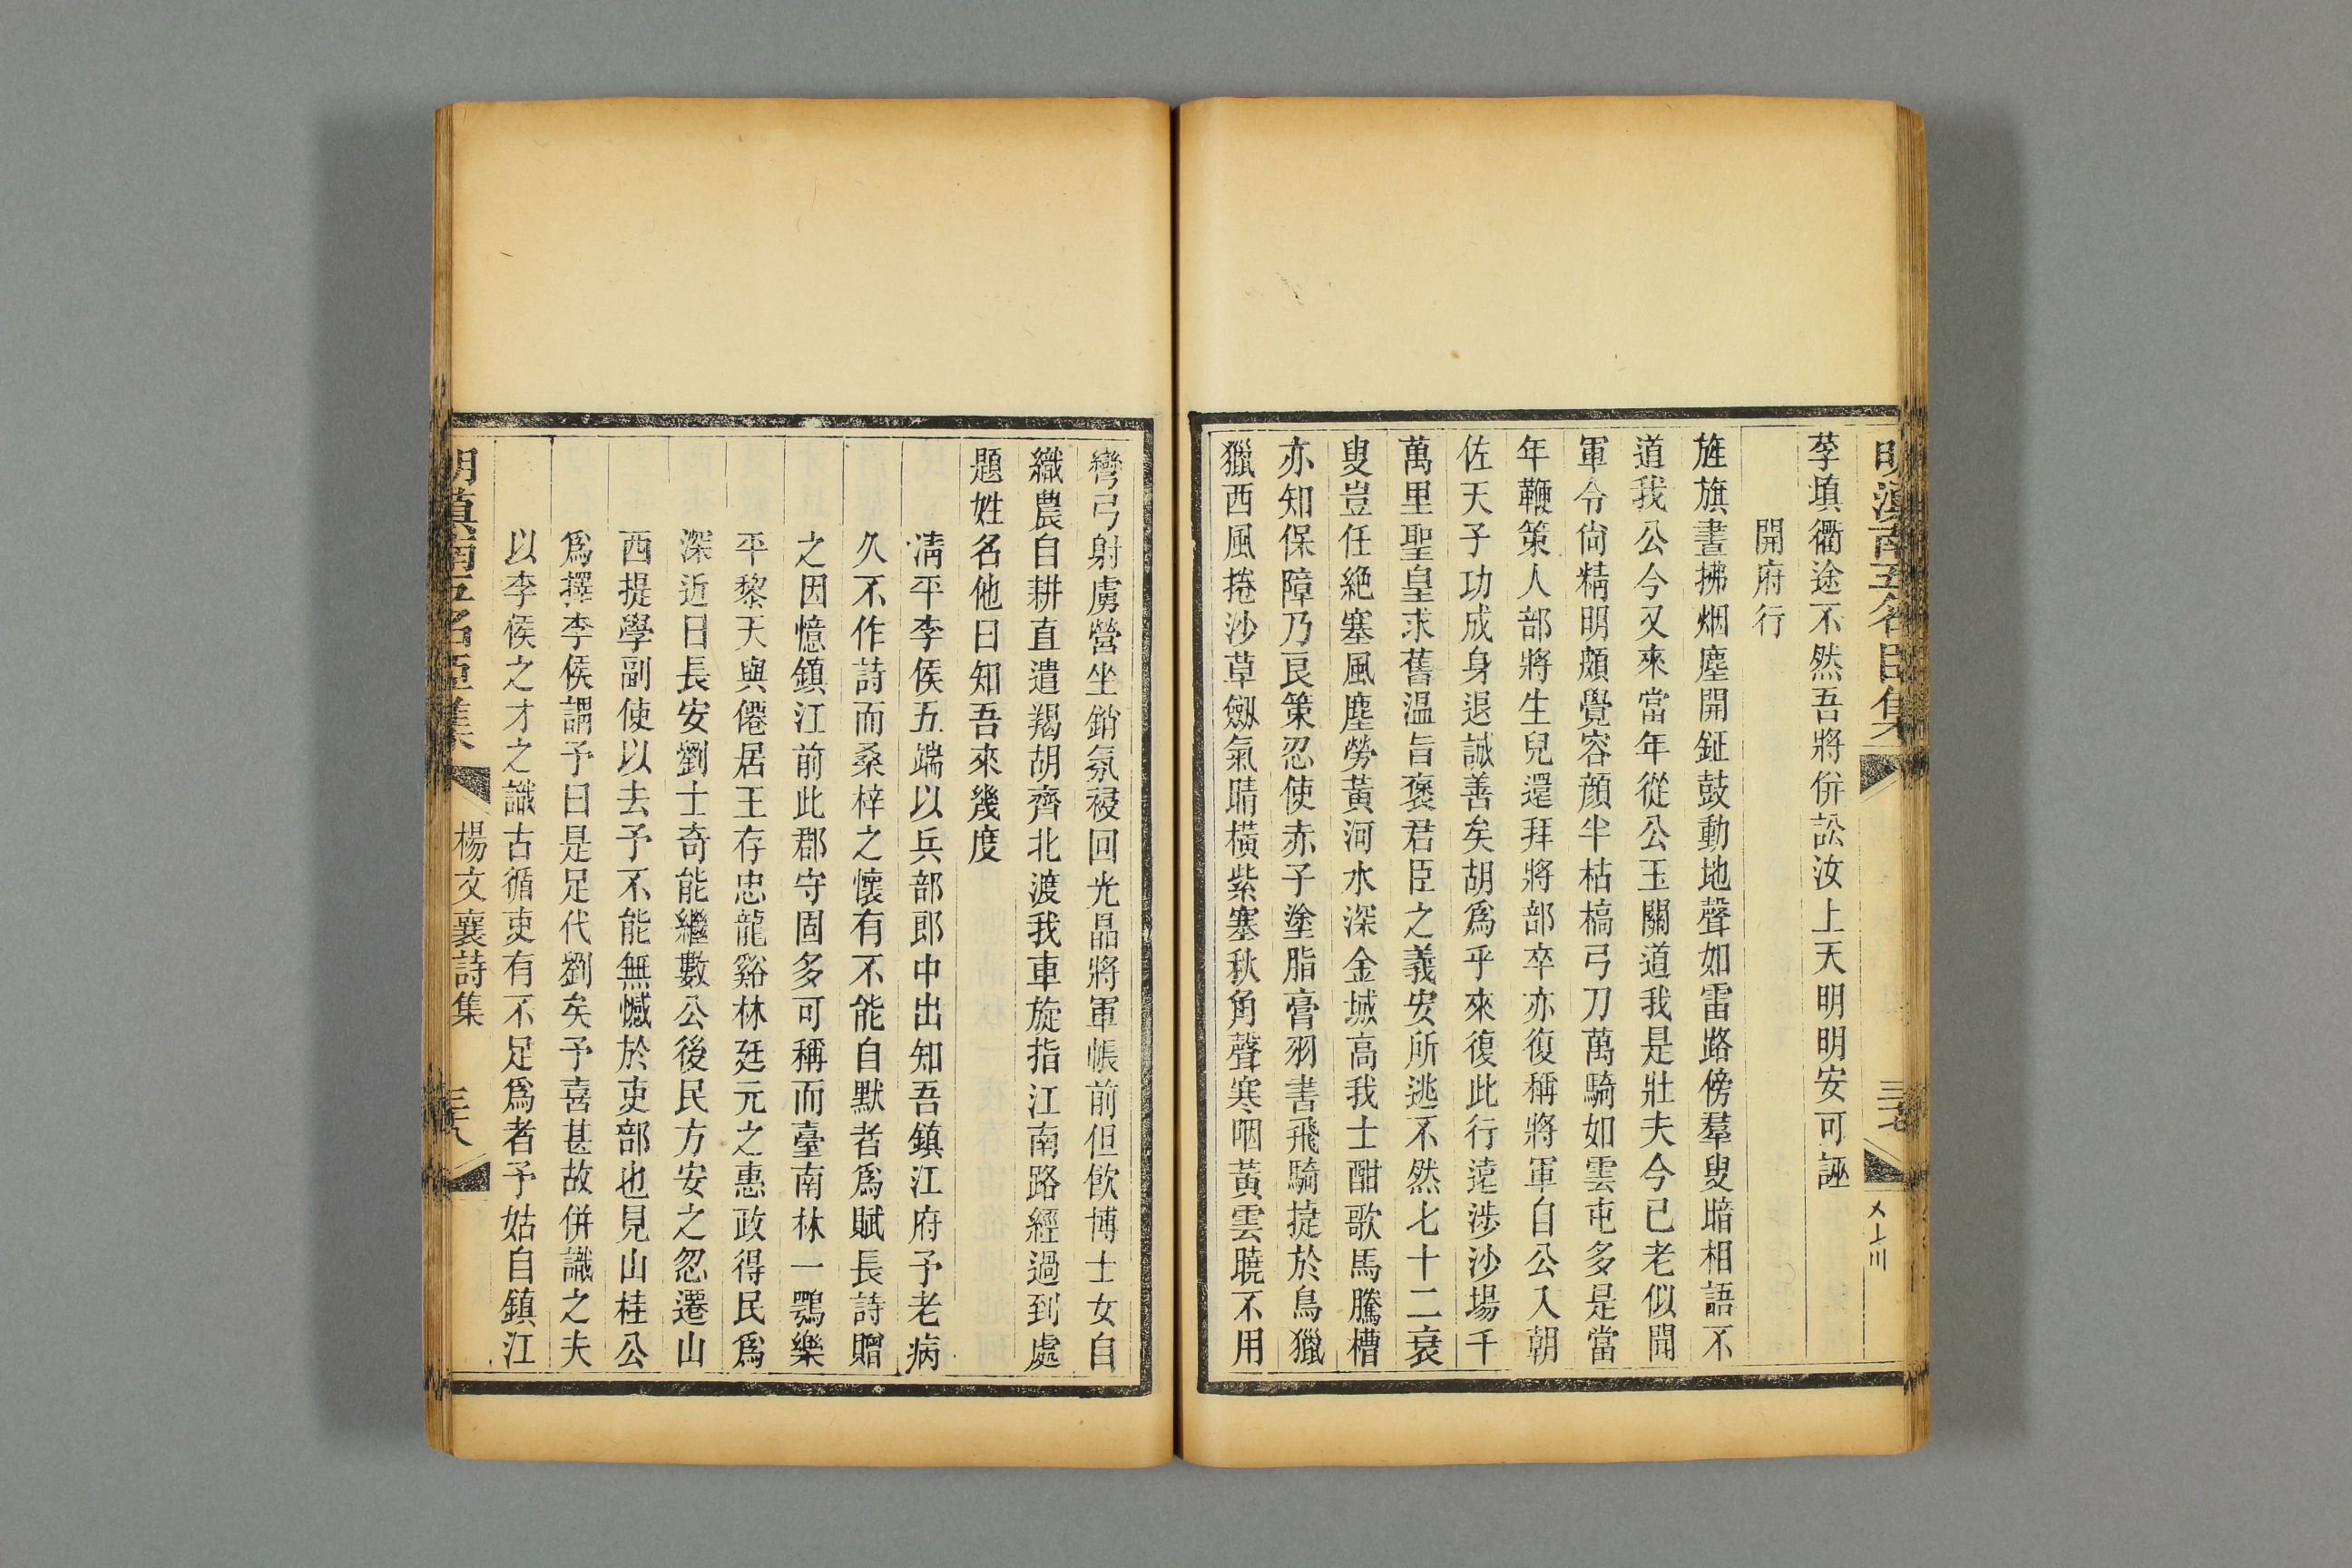 明滇南五名臣集
三十七
莩填衢途不然吾將併訟汝上天明明安可誣
開府行
旌旗晝拂烟塵開鉦鼓動地聲如雷路傍羣叟暗相語不
道我公今又來當年從公玉關道我是壯夫今已老似聞
軍令尙精明頗覺容顏半枯槁弓刀萬騎如雲屯多是當
年鞭策人部將生兒還拜將部卒亦復稱將軍自公入朝
佐天子功成身退誠善矣胡爲乎來復此行遠涉沙場千
萬里聖皇求舊溫旨褒君臣之義安所逃不然七十二衰
叟豈任絶塞風塵勞黃河水深金城高我士酣歌馬騰槽
亦知保障乃良策忍使赤子塗脂膏羽書飛騎捷於鳥獵
獵西風捲沙草劔氣晴橫紫塞秋角聲寒咽黃雲曉不用
彎弓射虜營坐銷氛祲回光晶將軍帳前但飮博士女自
織農自耕直遣羯胡齊北渡我車旋指江南路經過到處
題姓名他日知吾來幾度
淸平李侯五端以兵部郎中出知吾鎮江府予老病
久不作詩而桑梓之懷有不能自默者爲賦長詩贈
之因憶鎮江前此郡守固多可稱而臺南林一鶚樂
平黎天與僊居王存忠龍谿林廷元之惠政得民爲
深近日長安劉士奇能繼數公後民方安之忽遷山
西提學副使以去予不能無憾於吏部也見山桂公
爲擇李侯謂予曰是足代劉矣予喜甚故併識之夫
以李侯之才之識古循吏有不足爲者予姑自鎮江
明滇南五名臣集
楊文襄詩集
三十八